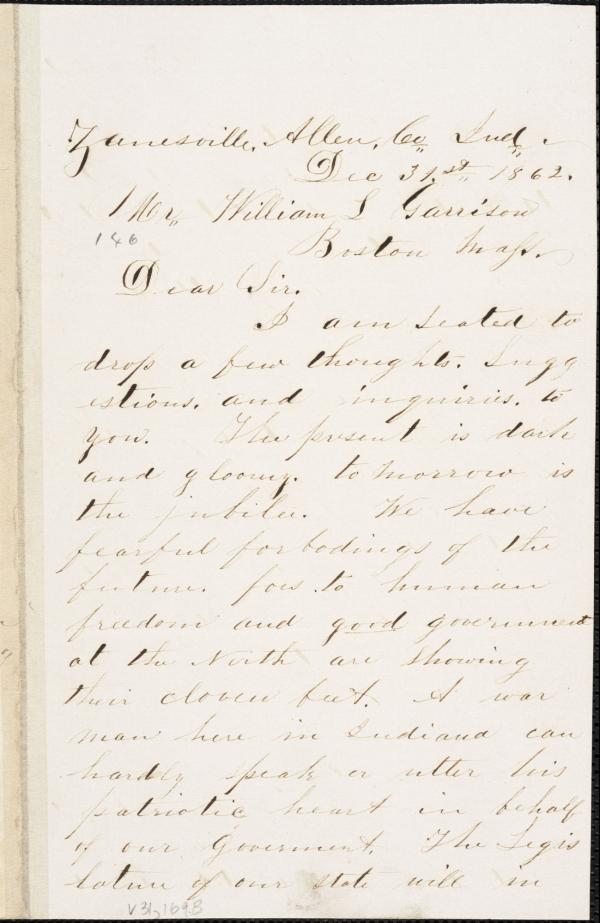 Zanesville, Allen, Co Ind.
Dec 31.st 1862.
Mr, William L Garrison
146
Boston Mass.
Dear Sir.
I am seated to
drop a few thoughts. Sugg
estions. and inquiries. to
you. The present is dark
and gloomy. to morrow is
the jubilee. We have
fearful forbodings of the
future. foes to human
freedom and good government
at the North are showing
their cloven feet. A war
man here in Indiana can
hardly speak or utter his
patriotic heart in behalf
of our Goverment. The Legis
lature of our state will in
v31, 169B